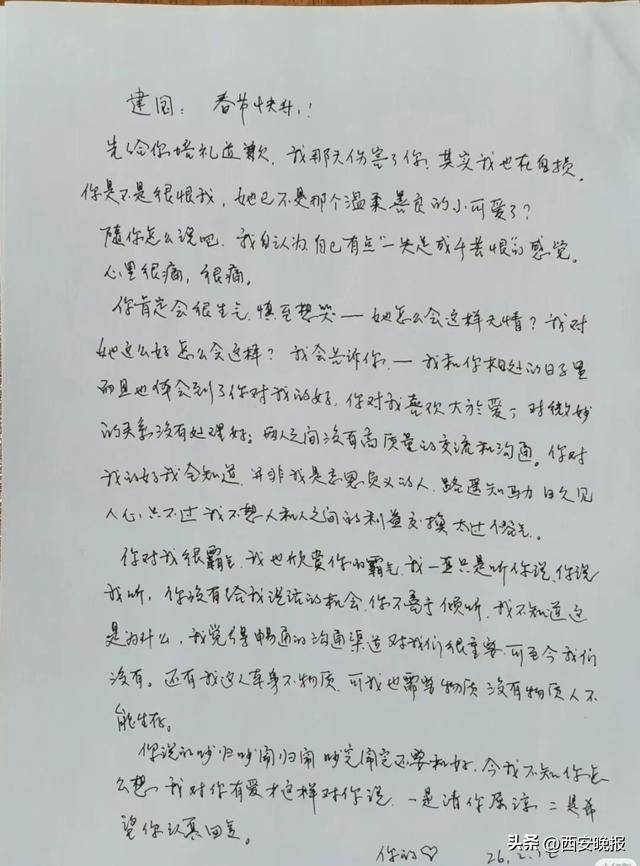 建国：春节快升！
先给你培礼道歉，我那天伤害了你，其实我也在自损。
你是不是很恨我，她已不是那个温柔善良的小可爱了？
随你怎么说吧，我自认为自己有点"一失足成千苦恨"的感觉。
心里很痛，很痛。
你肯定会很生气，慎至想哭—她怎么会这样无情？我对
她这么好怎么会这样？我会告诉你，—我和你相处的日子里
而且也体会到了你对我的好，你对我喜欢大於爱，对微妙
的关系没有处理好；两人之间没有高质量的交流和沟通。你对
我的好我全知道，并非我是忘恩负义的人，路遥知马力日久见
人心，只不过我不想人和人之间的利益交换太过俗气。
你对我很霸气，我也欣赏你的霸气，我一直只是听你说，你说
我听，你没有给我说话的机会，你不善于倾听，我不知道这
是为什么，我觉得畅通的沟通渠道对我们很重要，可至今我们
没有。还有我这人本身不物质，可我也需要物质，没有物质人不
能生存。
你说的吵归吵闹归闹吵完闹完还要和好，今我不知你怎
么想，我对你有爱才这样对你说，一是请你原谅，二是希
望你认真回复。
你的♡
26.2.
头条@西安晚报